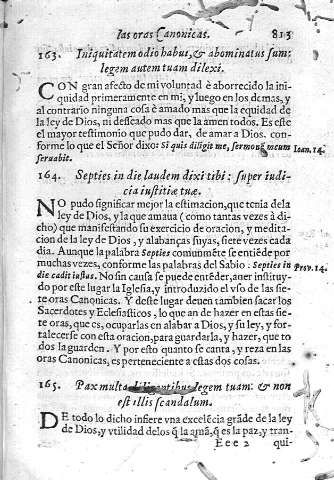 las oras Canonicas. 813
163. Iniquitatem odio habui, & abominatus sum:
legem autem tuam dilexi.
CON gran afecto de mi voluntad è aborrecido la ini-
quidad primeramente en mi, y luego en los demas, y
al contrario ninguna cosa è amado mas que la equidad de
la ley de Dios, ni deseado mas que la amen todos. Es este
el mayor testimonio que pudo dar, de amar a Dios. con-
forme lo que el Señor dixo: Si quis diligit me, sermonē meum Ioan. 14.
seruabit.
164. Septies in die laudem dixi tibi: super iudi-
cia iustitiæ tuæ.
NO pudo significar mejor la estimacion, que tenia de la
ley de Dios, y la que amaua (como tantas vezes à di-
cho) que manifestando su exercicio de oracion, y medita-
cion de la ley de Dios, y alabanças suyas, siete vezes cada
dia. Aunque la palabra Septies comunmēte se entiēde por
muchas vezes, conforme las palabras del Sabio: Septies in Prov. 14.
die cadit iustus. No sin causa se puede entēder, auer instituy-
do por este lugar la Iglesia, y introduzido el vso de las sie-
te oras Canonicas. Y deste lugar deuen tambien sacar los
Sacerdotes y Eclesiasticos, lo que an de hazer en estas sie-
te oras, que es, ocuparlas en alabar a Dios, y su ley, y for-
talecerse con esta oracion, para guardarla, y hazer, que to-
dos la guarden. Y por esto quanto se canta, y reza en las
oras Canonicas, es perteneciente a estas dos cosas.
165. Pax multa diligentibus legem tuam: & non
est illis scandalum.
DE todo lo dicho infiere vna excelēcia grāde de la ley
de Dios, y vtilidad de los q̄ la amā, q̄ es la paz, y tran-
Eee 2 qui-